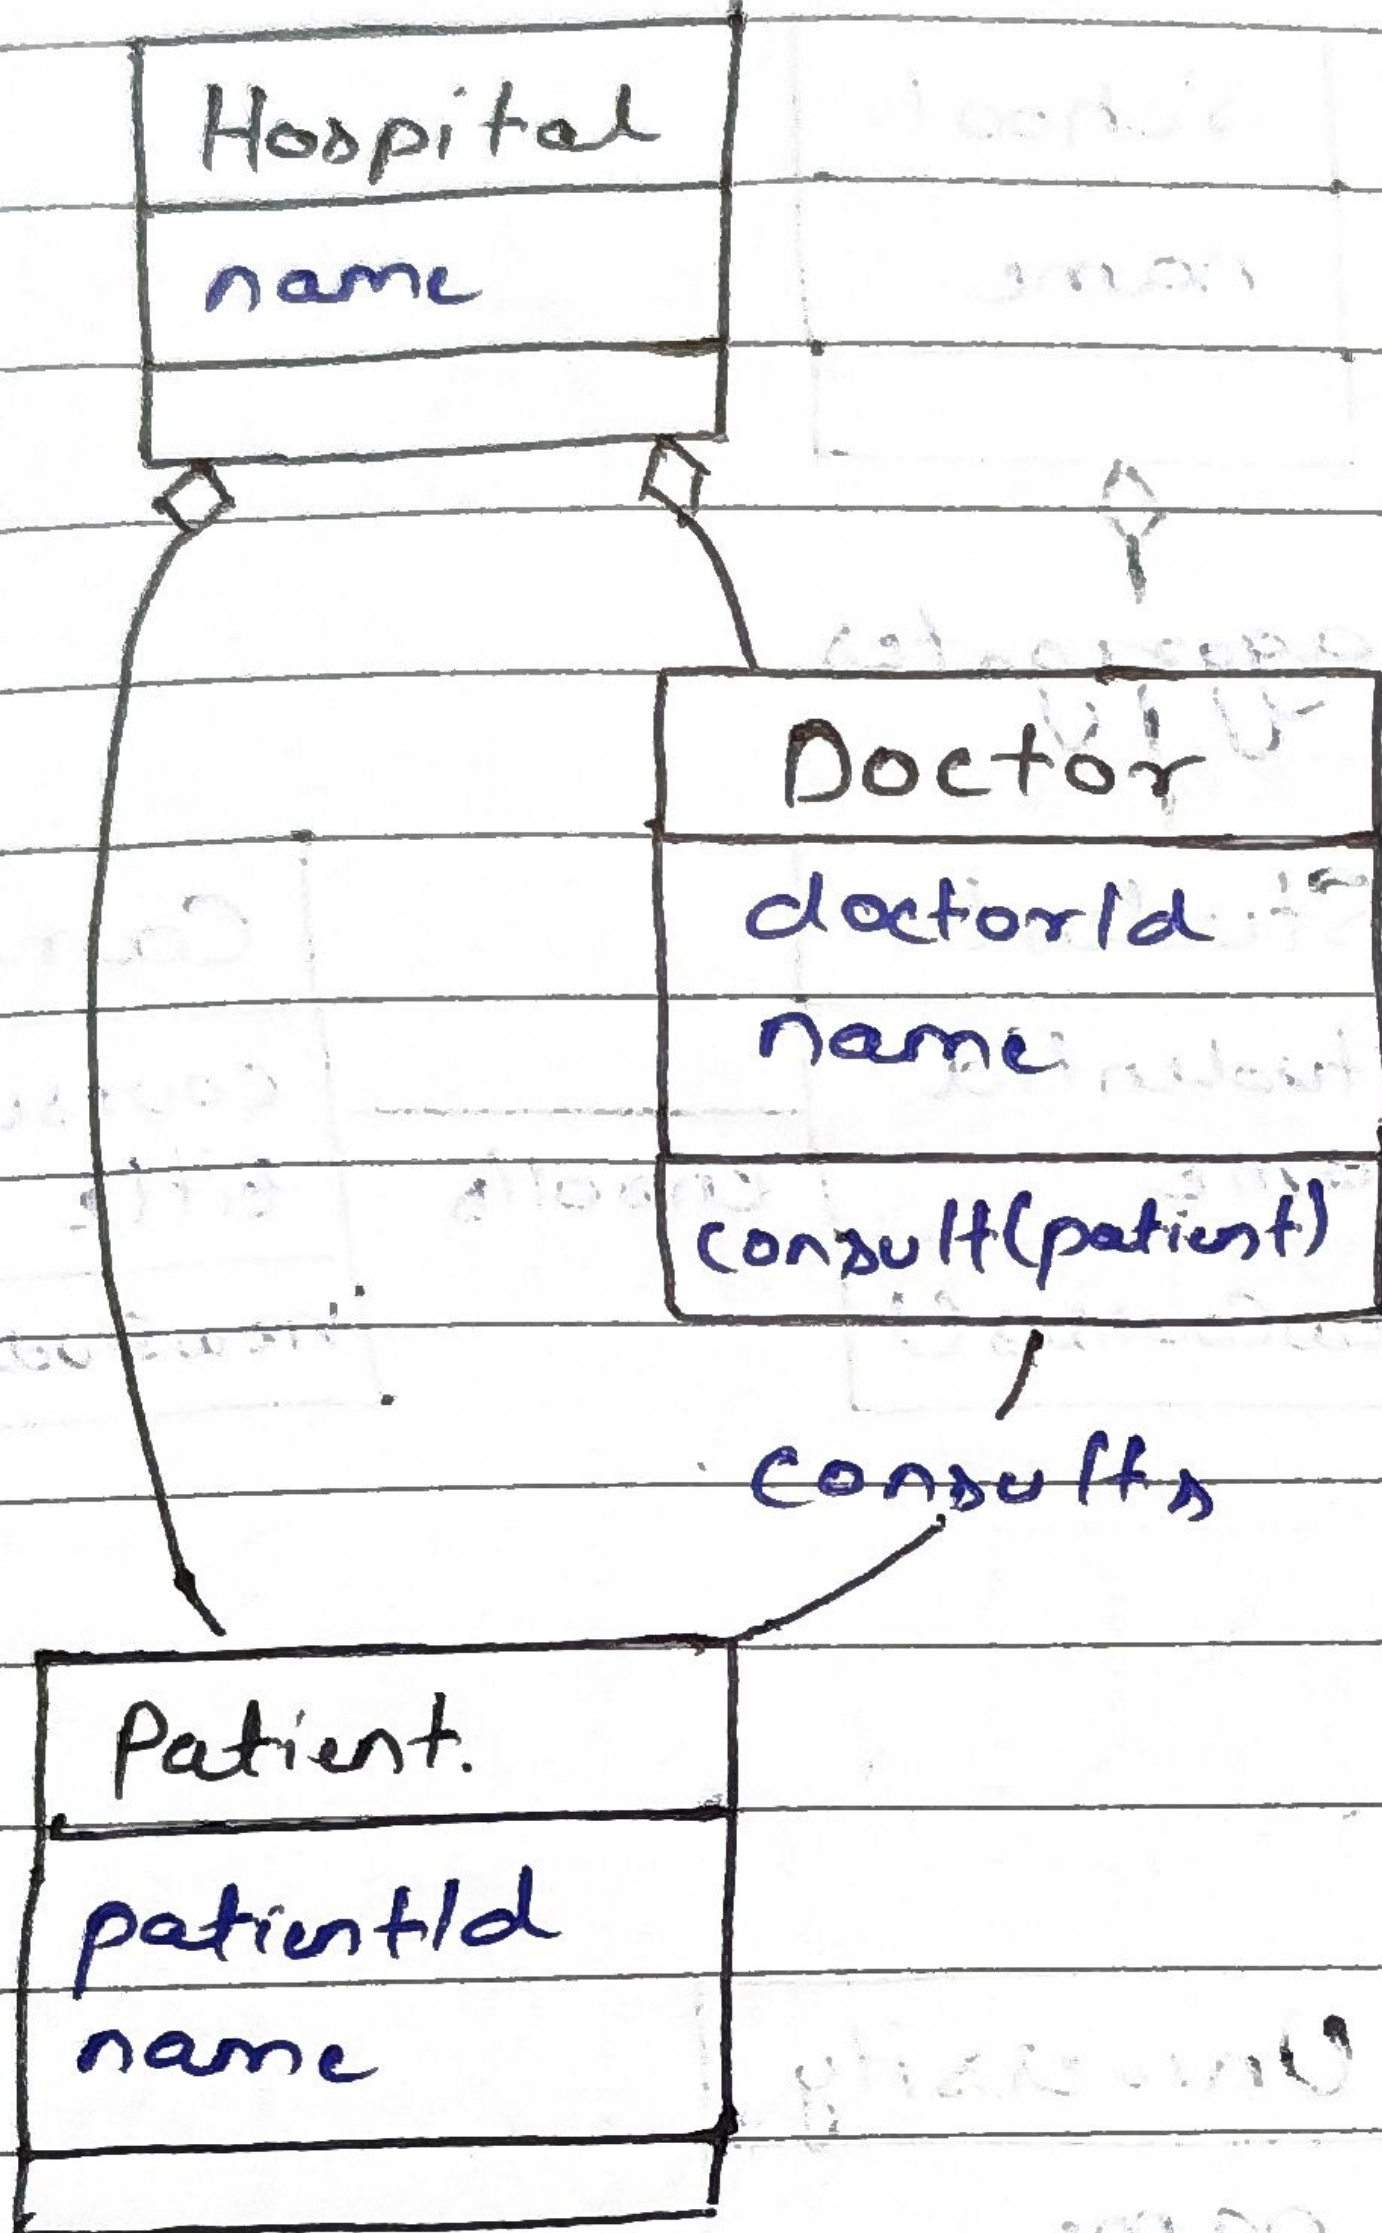 Hospital
name
Doctor
doctorId
name
consult(patient)
consults
Patient.
patientId
name